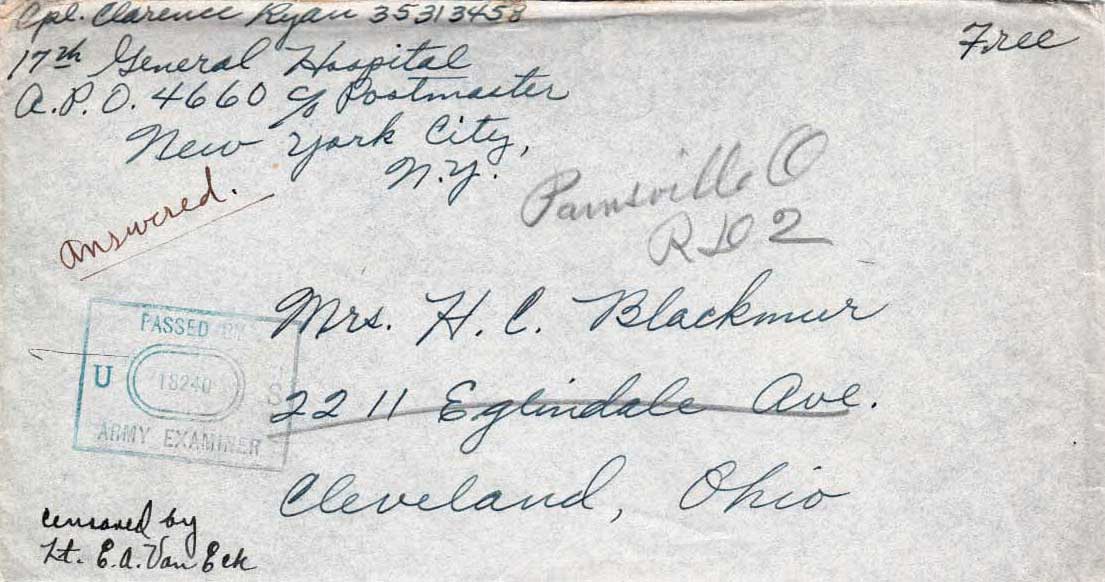 Cpl. Clarence Ryan 35313458
17th General Hospital
A.P.O. 4660 c/o Postmaster
New York City,
N.Y.
Free
Answered.
Painsville O
RD 2
PASSED BY
U 18240 S
ARMY EXAMINER
Mrs. H. C. Blackmur
2211 Eglindale Ave.
Cleveland, Ohio
Censored by
Lt. E.A. Van Eck